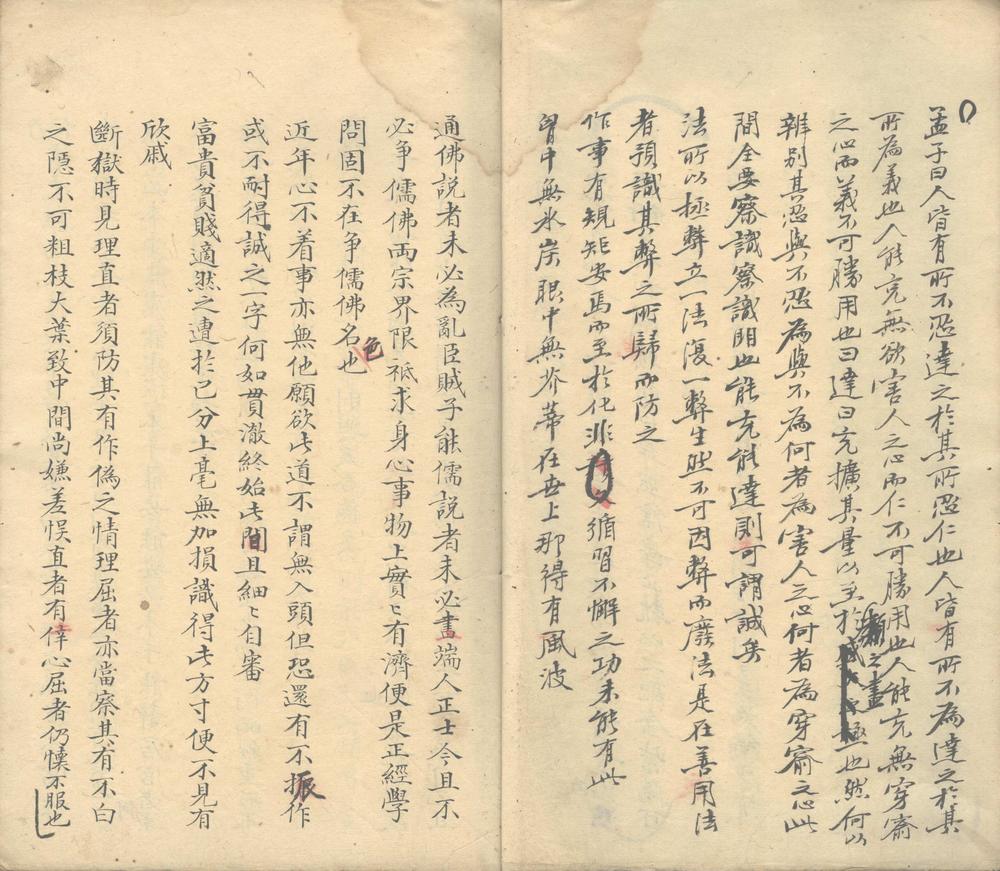 孟子曰人皆有所不忍達之於其所忍仁也人皆有所不為達之於其
所為義也人能充無欲害人之心而仁不可勝用也人能充無穿窬
之心而義不可勝用也曰達曰充擴其量以至於漸之盡極也然何以
辨別其忍與不忍為與不為何者為害人之心何者為穿窬之心此
間全要察識察識明也能充能達則可謂誠矣
法所以拯弊立一法復一弊生然不可因弊而廢法是在善用法
者預識其弊之所歸而防之
作事有規矩安焉而至於化非久循習不懈之功未能有此
胷中無氷炭眼中無芥蒂在世上那得有風波
通佛說者未必為亂臣賊子能儒說者未必盡端人正士今且不
必爭儒佛兩宗界限祗求身心事物上實〻有濟便是正經學
問固不在爭儒佛名色也
近年心不着事亦無他願欲此道不謂無入頭但恐還有不振作
或不耐得誠之一字何如貫澈終始此間且細〻自審
富貴貧賤適然之遭於已分上毫無加損識得此方寸便不見有
欣戚
斷獄時見理直者須防其有作偽之情理屈者亦當察其有不白
之隱不可粗枝大葉致中間尚嫌差悮直者有倖心屈者仍懷不服也